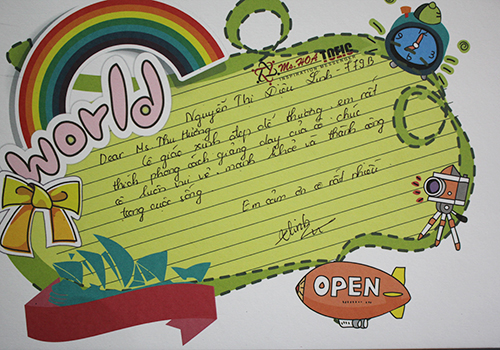 world
Ms.HOA TOEIC
INSPIRATION MESSENGER
Nguyễn Thị Diệu Linh - 779B
Dear Ms Thu Hương
Cô giáo xinh đẹp dễ thương, em rất
thích phong cách giảng dạy của cô, chúc
cô luôn vui vẻ, mạnh khoẻ và thành công
trong cuộc sống
Em cảm ơn cô rất nhiều
Linh
OPEN